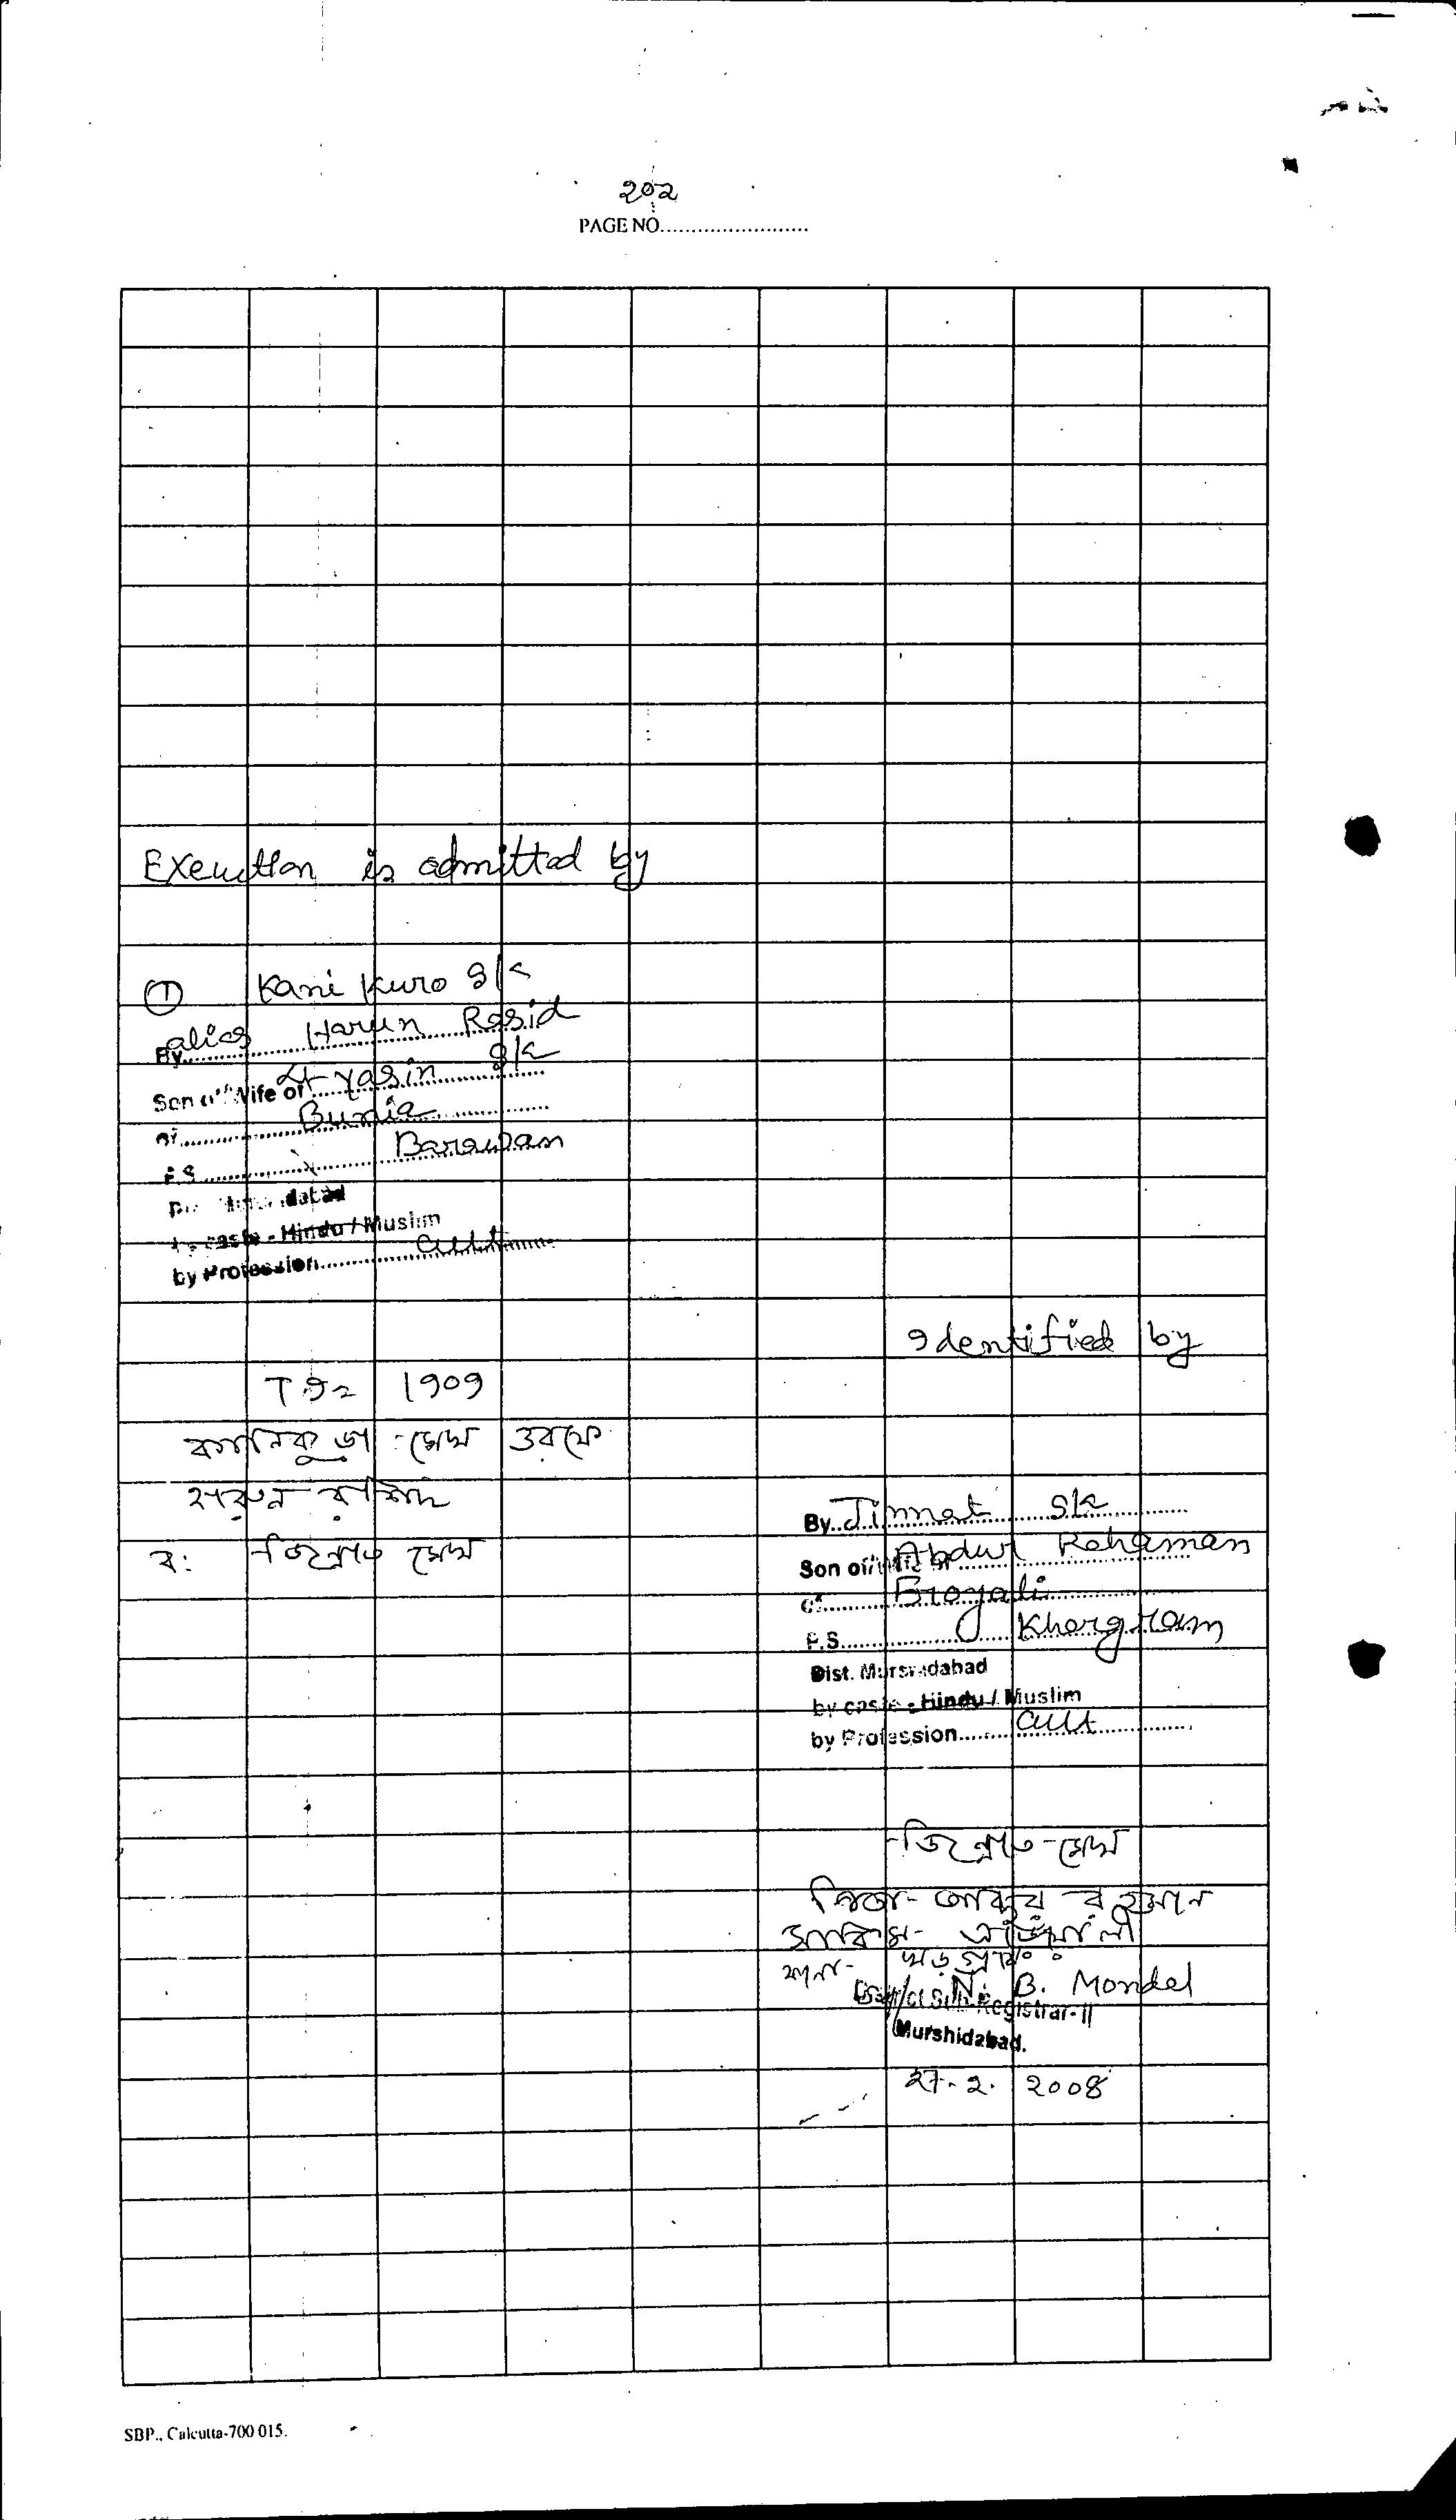 202
PAGE NO.........................
Execution is admitted by
① Kani Kuro Sk
alias Harun Rasid
By
Son of/Wife of Lt Yasin Sk
of Bunia
P.S. Barawan
Dist. Murshidabad
by caste - Hindu / Muslim
by Profession cult
Identified by
1909
কানিকুড়া সেখ ওরফে
হারুন রশিদ
ব: জিন্নাত সেখ
By Jinnat Sk
Son of/Wife of Abdur Rahaman
of Eroyali
P.S. Khargram
Dist. Murshidabad
by caste - Hindu / Muslim
by Profession cult
জিন্নাত সেখ
পিতা- আব্দুর রহমান
সাকিম- এড়োয়ালী
থানা- খড়গ্রাম
N. B. Mondal
District Sub-Registrar-II
Murshidabad.
27.2.2008
SBP., Calcutta-700 015.